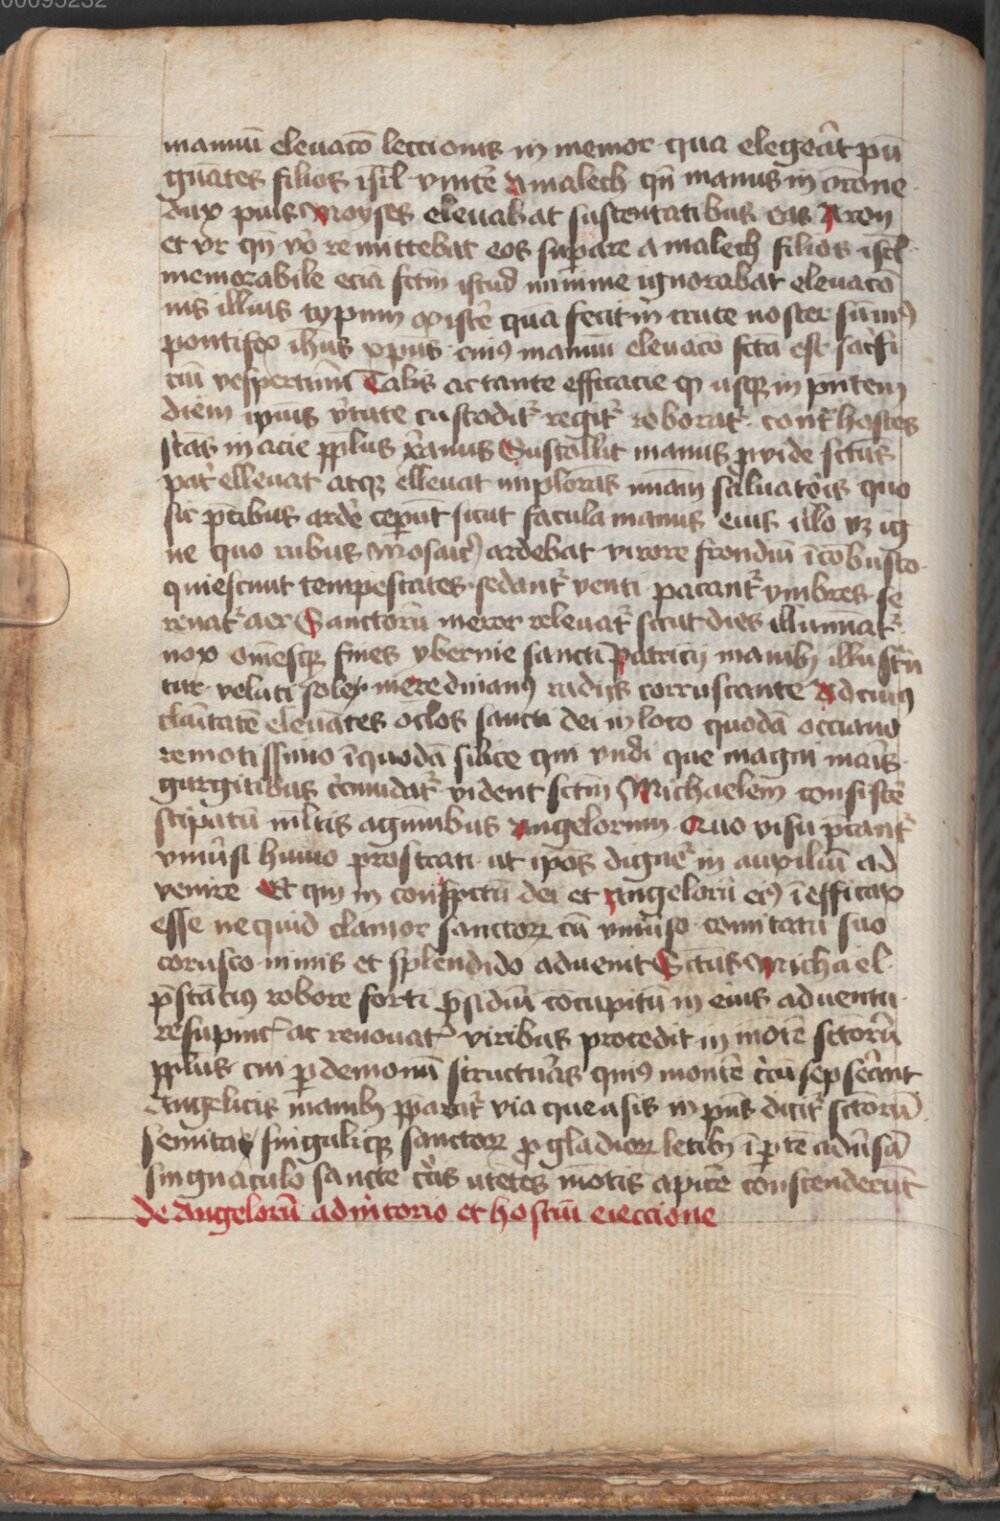 00095232
manuū eleuacō leccionis in memor qua elegeāt pu
gnātes filios isrl vincē Amalech qn̄ manus in orōne
dux pius Moyses eleuabat sustentatibus eas Aron
et vr qn̄ vo remittebat eos supare amalech filios isrl
memorabile ecia fctm istud minime ignorabat eleuacō
nis illius typum existē quā fecit in cruce noster sūmꝰ
pontifex ihus xpus cuiꝰ manuū eleuaco fcta est sacrfi
ciū vespertinū Talis ac tante efficacie qͥ usqꝫ in pn̄tem
diem ipius vtute custodit᷑ regit᷑ roborat᷑ contͣ hostes
stās in acie pplus xanus Sustollit manus prouide sctūs
pat ellēuat atqꝫ elleuat implorās mām saluatōis quo
sic pcibus ardē cepūt sicut facula manus eius illo vꝫ ig
ne quo rubus Mosaicꝰ ardebat virore frondiū īcōbusto
quiescunt tempestates sedant᷑ venti pacant᷑ ymbres se
renat᷑ aer Sanctorū meror releuat᷑ sicut dies illuminat᷑
nox om̄esqꝫ fines ybernie sancti Patricij manibꝫ illustrn̄
tur veluti sole meredianꝰ radijs corruscante Ad cuiꝰ
claritatē eleuātes oclos sancti dei in loco quodā occiano
remotissimo ī quodā silice qui vndi que magni maris
gurgitibus cͥcūdat᷑ vident sctm Michaelem consistē
stipatū mltis agminibus Angelorum Quo visu pͥcant᷑
vniūsi humo prostrati ut ipos dignet᷑ in auxiliū ad
venire Et qui in conspctū dei et Angelorū eiꝰ īefficax
esse nequid clamor sanctorꝫ cū vniūso comitatu suo
corusco nimis et splendido aduenit Sctus Michael
pstāciꝰ robore forti psidiū cōcupitū in eius aduentu
resupint᷑ ac renouat᷑ viribus procedit in motē sctorū
pplus cui p demonū structuras quiꝰ montē cͥcūsepseānt
Angelicis manibꝫ pparat᷑ via que usis in pn̄s dicit᷑ sctorū
semita singuliqꝫ sanctorꝫ pro gladiorꝫ letibꝫ īptē aduīsā
singnaculo sancte cͣcis utētes mōtis apicē conscenderūt
de Angelorū adiutorio et hostiū eieccione